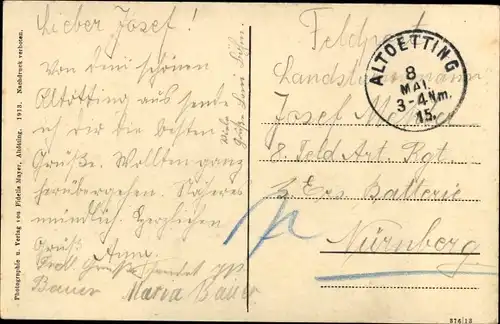 Lieber Josef!
Von dem schönen
Altötting aus sende
ich dir die besten
Grüße. Wollten ganz
herübergehen. Näheres
mündlich. Herzlichen
Gruß Anna
Frdl. Grüße sendet
Bauer Maria Bauer
Viele
Grüße
Photographie u. Verlag von Fidelis Mayer, Altötting. 1913. Nachdruck verboten.
Feldpost
ALTOETTING
8
MAI
3-4 Nm.
15.
Landsturmmann
Josef
8. Feld Art. Rgt.
2. Ers. Batterie
Nürnberg
376/13